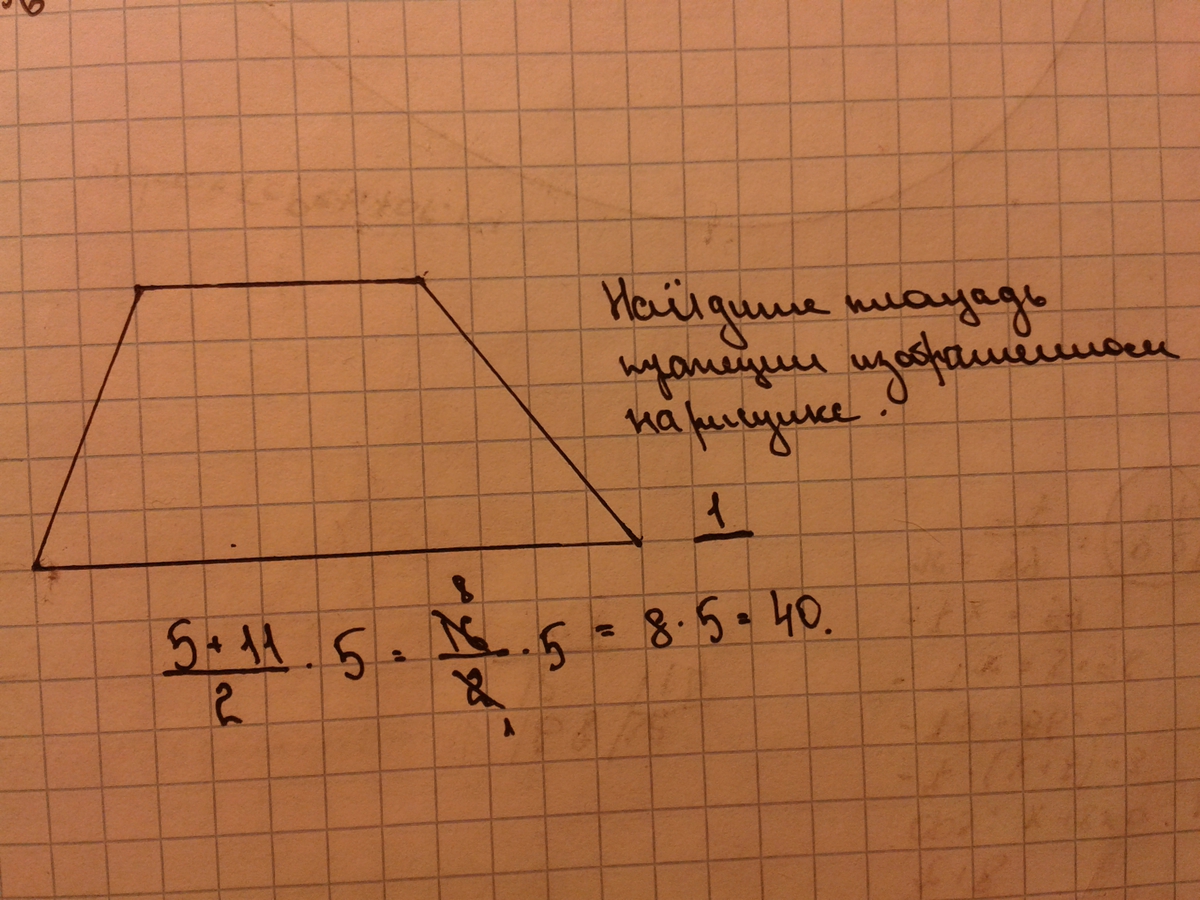 Найдите площадь
трапеции изображенной
на рисунке.
1
5+11/2 · 5 = 16/2 · 5 = 8 · 5 = 40.
8
1